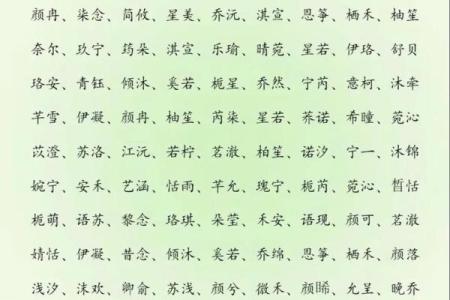 颜冉、柒念、简攸、星美、乔沅、淇宣、恩筝、栖禾、柚笙
奈尔、玖宁、筠朵、淇宣、乐瑜、晴菀、星若、伊珞、舒贝
珞安、青钰、倾沐、奚若、栀星、乔然、宁芮、意柯、沐牵
芊雪、伊凝、颜冉、柚笙、芮柒、星若、荞诺、希瞳、菀沁
苡澄、苏洛、江沅、若柠、茗澈、柏笙、诺汐、宁一、沐锦
婉宁、安禾、艺涵、恬雨、芊允、瑰宁、栀芮、菀沁、皙恬
栀萌、语苏、黎念、珞琪、朵莹、禾安、语现、颜可、茗澈
婧恬、伊凝、昔念、倾沐、奚若、乔绵、恩筝、栖禾、颜落
浅汐、沫欢、卿俞、苏浅、颜兮、微禾、颜晞、允呈、晚乔